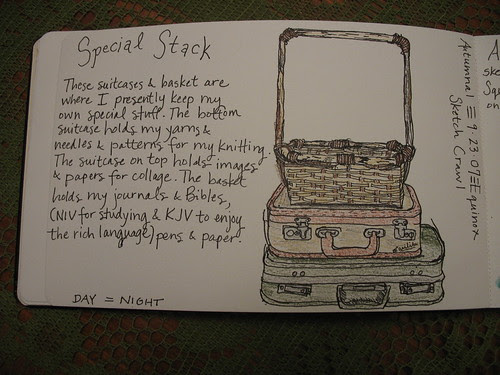 Special Stack
These suitcases & basket are
where I presently keep my
own special stuff. The bottom
suitcase holds my yarns &
needles & patterns for my knitting.
The suitcase on top holds images
& papers for collage. The basket
holds my journals & Bibles,
(NIV for studying & KJV to enjoy
the rich language) pens & paper.
DAY = NIGHT
Autumnal ≡ 9·23·07 ≡ Equinox
Sketch Crawl
A
ske
Sq
on